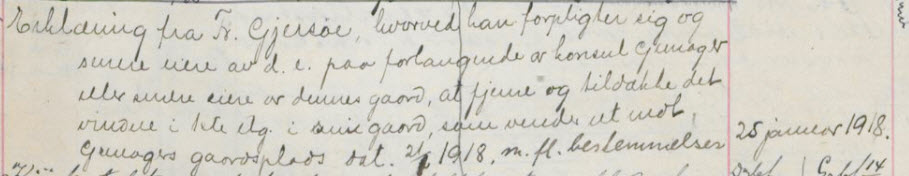 Erklæring fra Fr. Gjersøe, hvorved han forpligter sig og
senere eiere av d. e. paa forlangende av konsul Gunager
eller senere eiere av dennes gaard, at fjerne og tildække det
vindue i 1ste etg. i sin gaard, som vender ut mot
Gunagers gaardsplads dat. 2/1 1918, m. fl. bestemmelser
25 januar 1918.